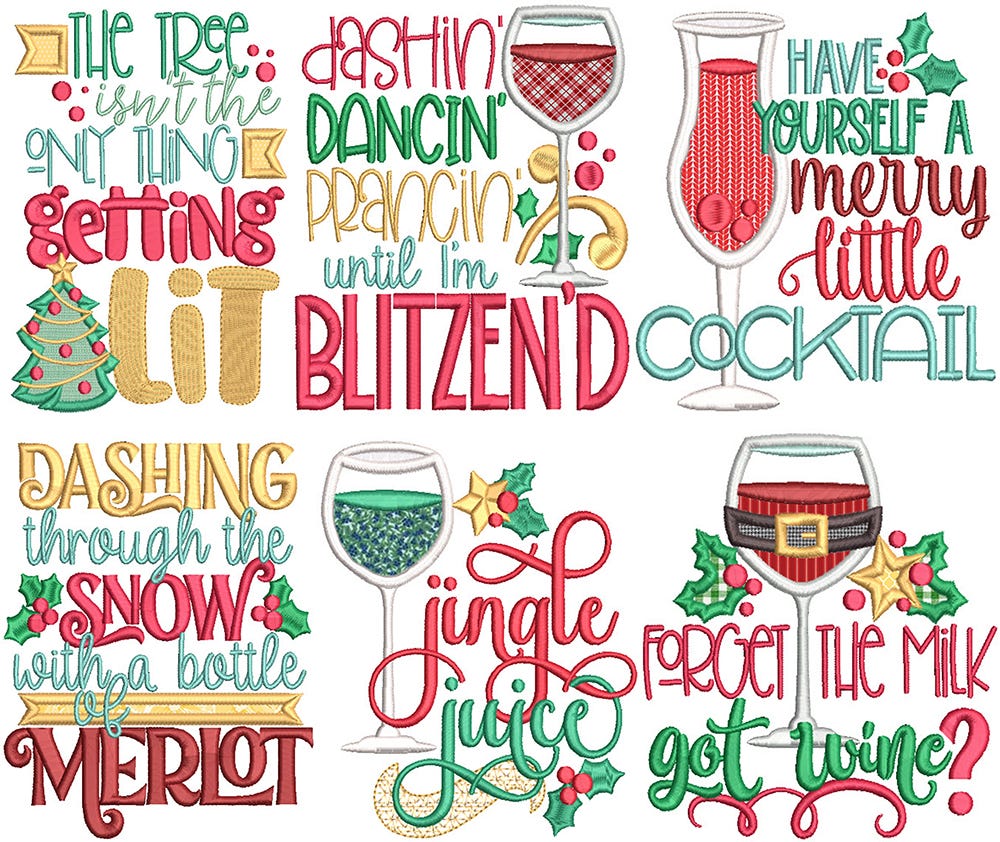 THE TREE
isn't the
ONLY THING
getting
LIT
dashin'
DANCIN'
PRANCIN'
until I'm
BLITZEN'D
HAVE
YOURSELF A
merry
little
COCKTAIL
DASHING
through the
SNOW
with a bottle
of
MERLOT
jingle
juice
FORGET THE MILK
got wine?